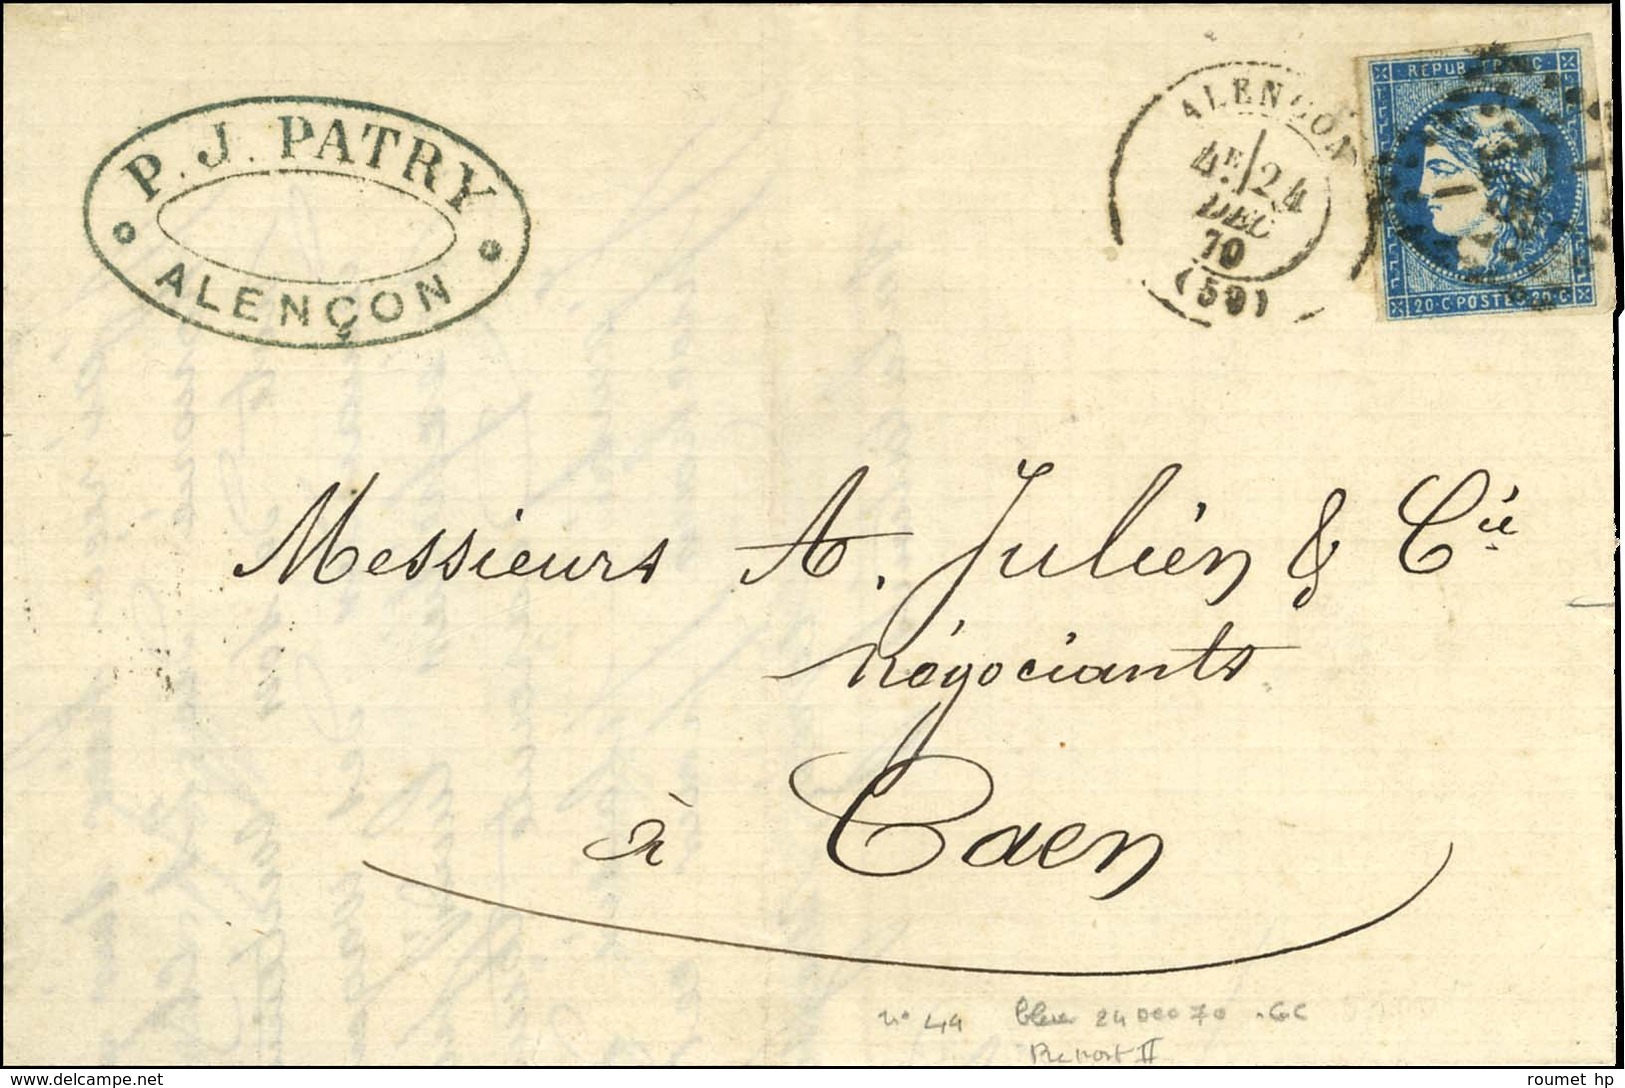 P. J. PATRY
ALENÇON
ALENÇON
4E 24
DEC
70
(59)
REPUB FRANC
20·C POSTES 20·C
Messieurs A. Julien & Cie
négociants
à Caen
n° 44 bleu 24 DEC 70 . GC
Report II
roumet hp